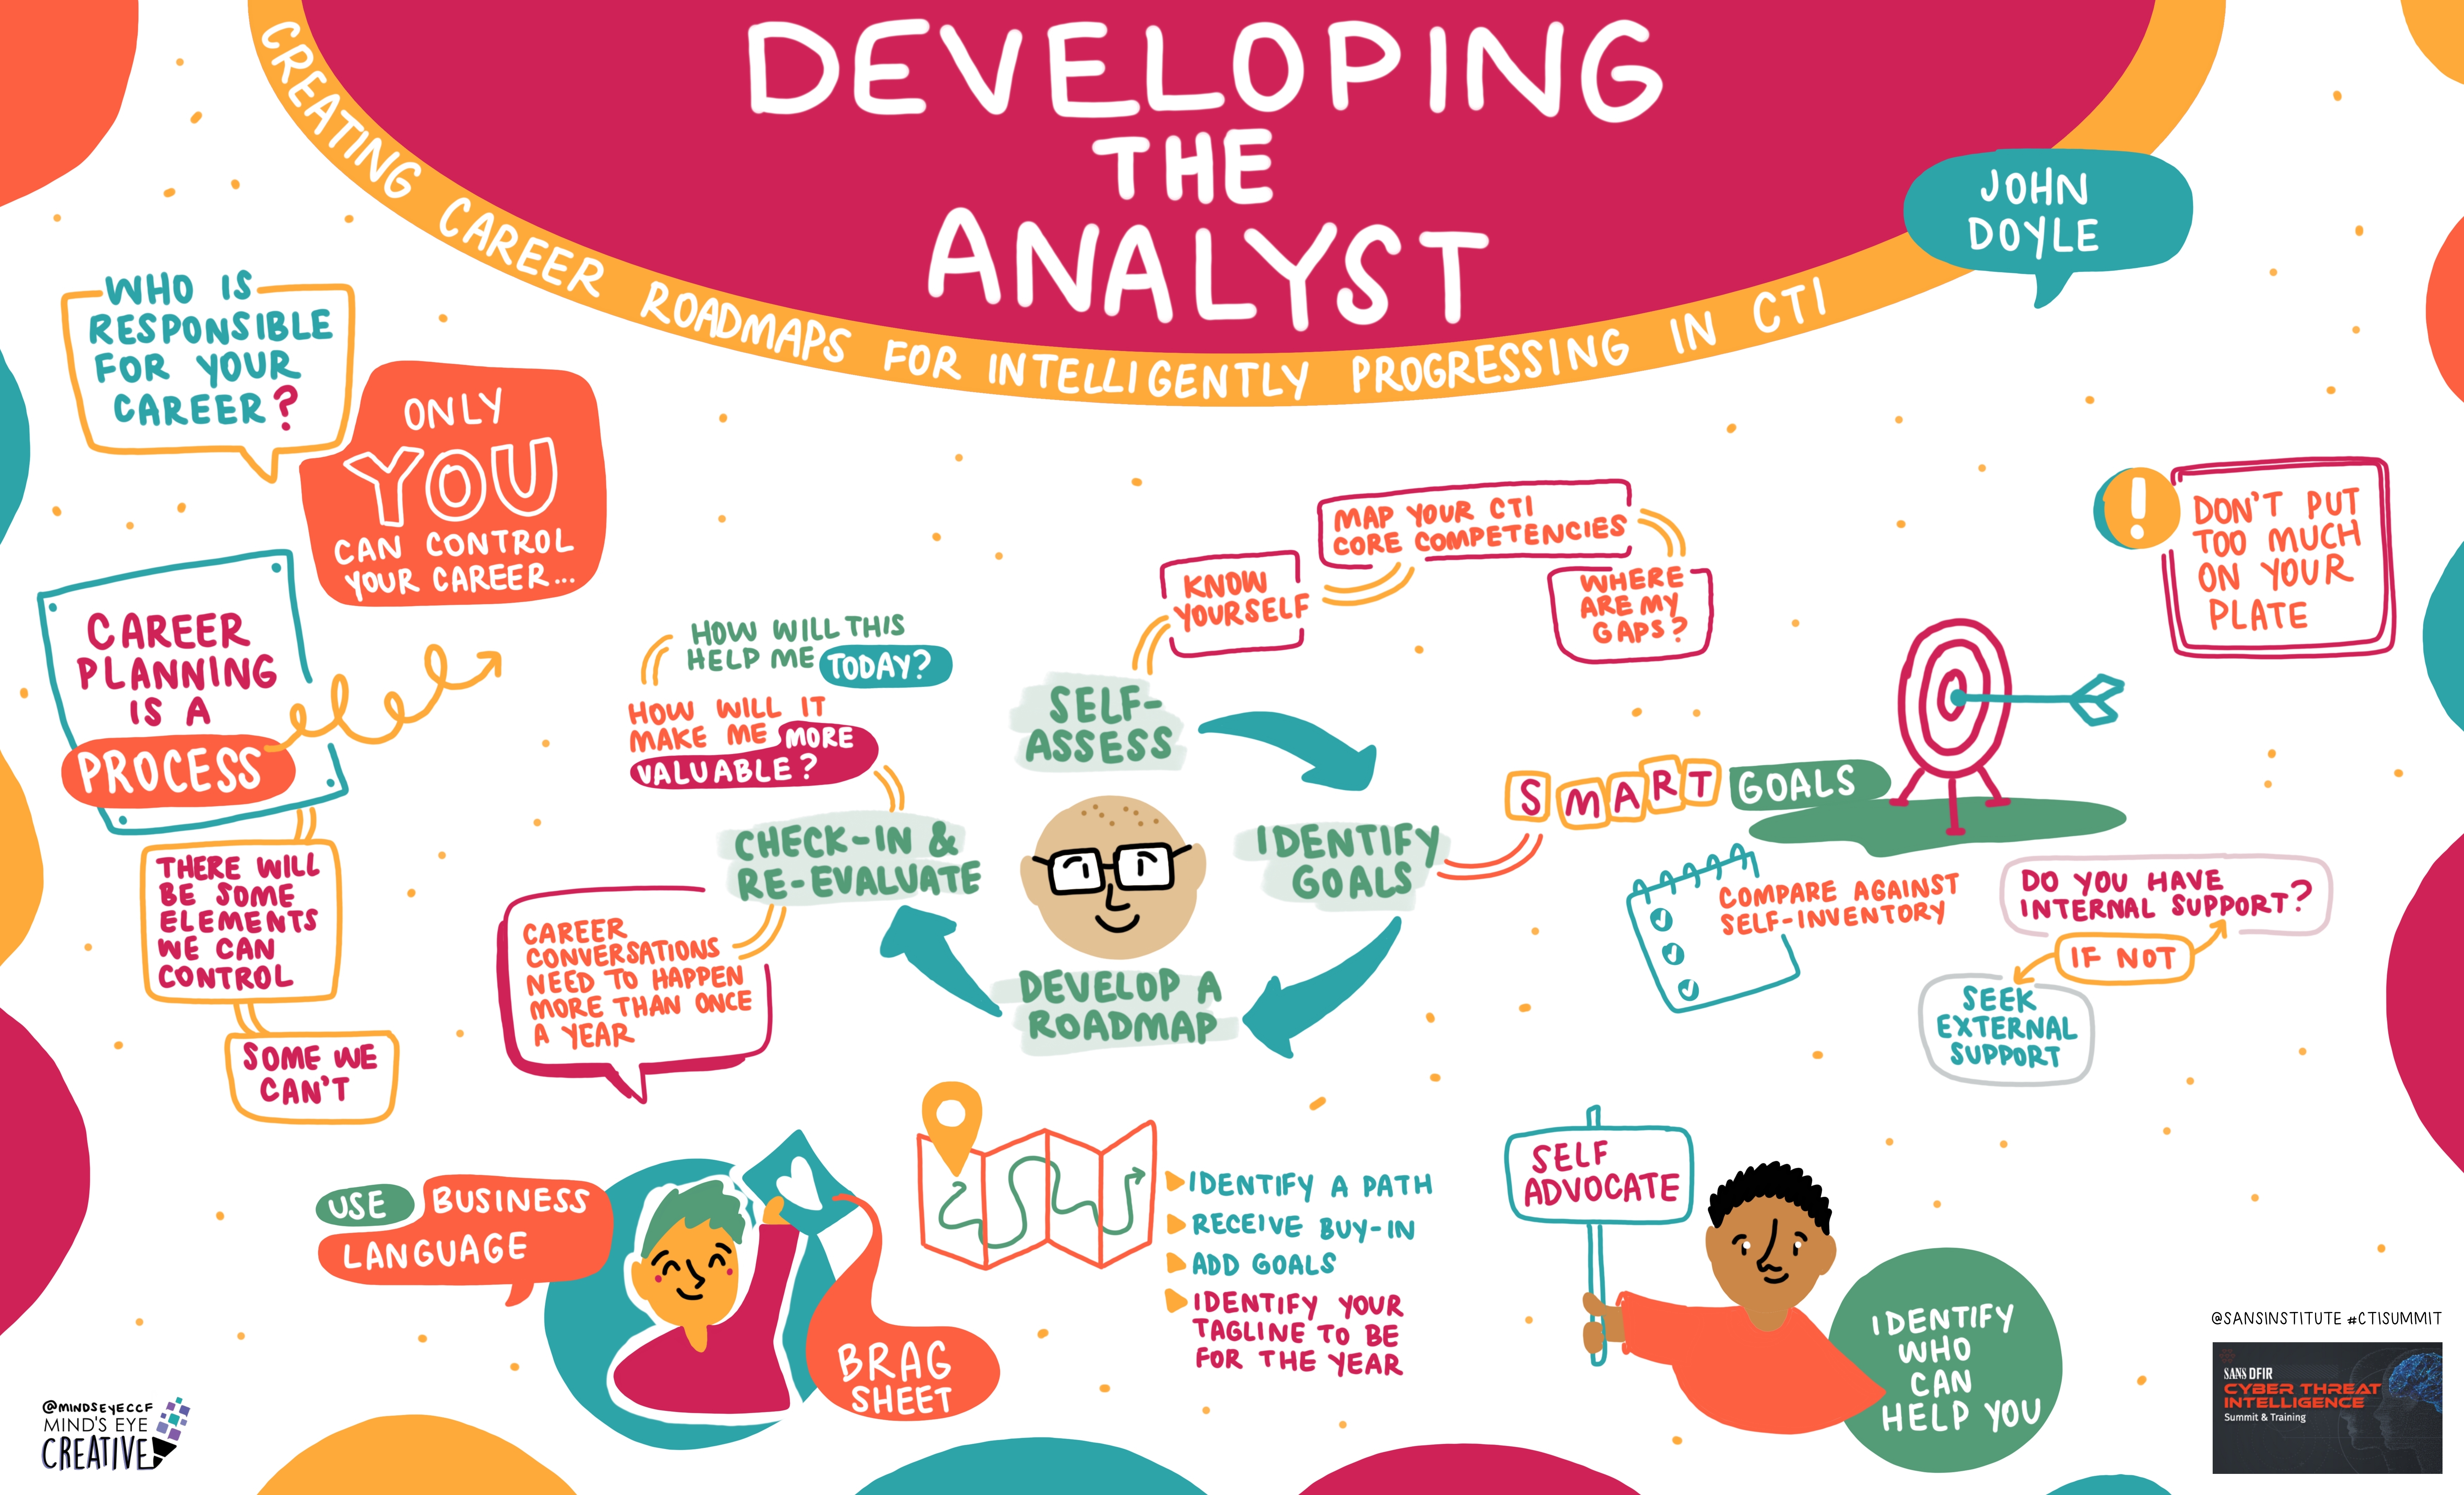 DEVELOPING
THE
ANALYST
CREATING CAREER ROADMAPS FOR INTELLIGENTLY PROGRESSING IN CTI
JOHN
DOYLE
WHO IS
RESPONSIBLE
FOR YOUR
CAREER?
ONLY
YOU
CAN CONTROL
YOUR CAREER...
CAREER
PLANNING
IS A
PROCESS
THERE WILL
BE SOME
ELEMENTS
WE CAN
CONTROL
SOME WE
CAN'T
SELF-
ASSESS
KNOW
YOURSELF
MAP YOUR CTI
CORE COMPETENCIES
WHERE
ARE MY
GAPS?
IDENTIFY
GOALS
SMART GOALS
DON'T PUT
TOO MUCH
ON YOUR
PLATE
COMPARE AGAINST
SELF-INVENTORY
DO YOU HAVE
INTERNAL SUPPORT?
IF NOT
SEEK
EXTERNAL
SUPPORT
DEVELOP A
ROADMAP
IDENTIFY A PATH
RECEIVE BUY-IN
ADD GOALS
IDENTIFY YOUR
TAGLINE TO BE
FOR THE YEAR
CHECK-IN &
RE-EVALUATE
HOW WILL THIS
HELP ME TODAY?
HOW WILL IT
MAKE ME MORE
VALUABLE?
CAREER
CONVERSATIONS
NEED TO HAPPEN
MORE THAN ONCE
A YEAR
USE BUSINESS
LANGUAGE
BRAG
SHEET
SELF
ADVOCATE
IDENTIFY
WHO
CAN
HELP YOU
@MINDSEYECCF
MIND'S EYE
CREATIVE
@SANSINSTITUTE #CTISUMMIT
SANS DFIR
CYBER THREAT
INTELLIGENCE
Summit & Training